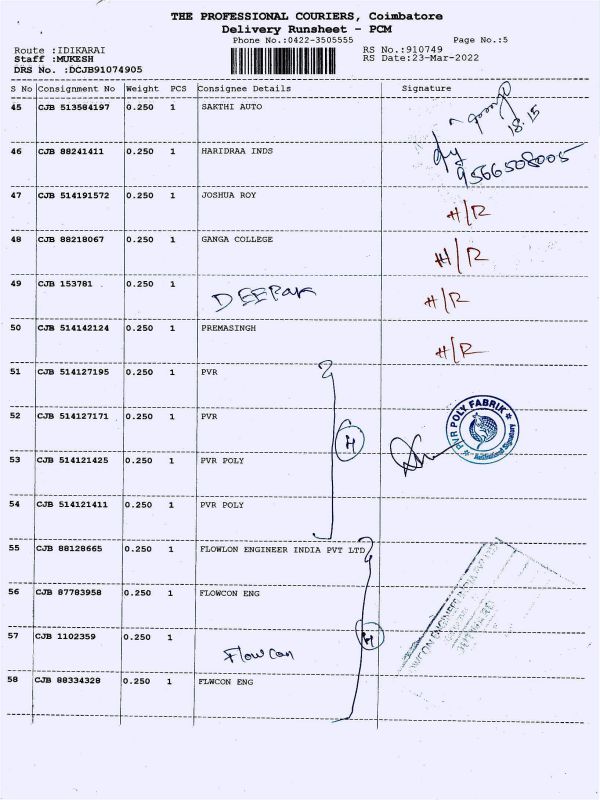 THE PROFESSIONAL COURIERS, Coimbatore
Delivery Runsheet - PCM
Phone No.:0422-3505555 Page No.:5
Route :IDIKARAI RS No.:910749
Staff :MUKESH RS Date:23-Mar-2022
DRS No. :DCJB91074905
S No Consignment No Weight PCS Consignee Details Signature
45 CJB 513584197 0.250 1 SAKTHI AUTO
18.15
46 CJB 88241411 0.250 1 HARIDRAA INDS
9566508005
47 CJB 514191572 0.250 1 JOSHUA ROY H/R
48 CJB 88218067 0.250 1 GANGA COLLEGE H/R
49 CJB 153781 0.250 1 DEEPAK H/R
50 CJB 514142124 0.250 1 PREMASINGH H/R
51 CJB 514127195 0.250 1 PVR
52 CJB 514127171 0.250 1 PVR
PVR POLY FABRIK
Authorised Signatory
53 CJB 514121425 0.250 1 PVR POLY
54 CJB 514121411 0.250 1 PVR POLY
55 CJB 88128665 0.250 1 FLOWLON ENGINEER INDIA PVT LTD
56 CJB 87783958 0.250 1 FLOWCON ENG
57 CJB 1102359 0.250 1 Flowcon
58 CJB 88334328 0.250 1 FLWCON ENG